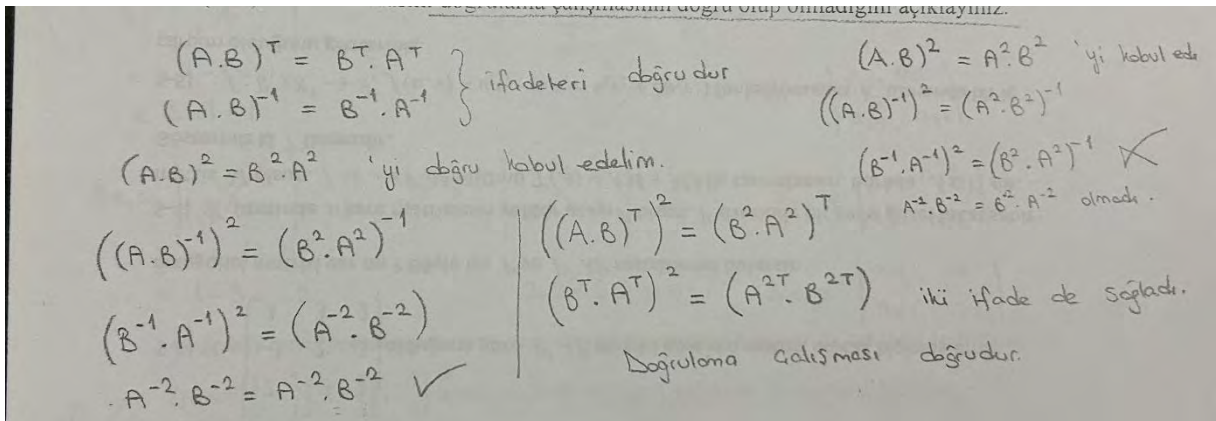 doğrulama çalışmasının doğru olup olmadığını açıklayınız.
(A.B)ᵀ = Bᵀ.Aᵀ
(A.B)⁻¹ = B⁻¹.A⁻¹ } ifadeleri doğrudur
(A.B)² = B²A² 'yi doğru kabul edelim.
((A.B)⁻¹)² = (B².A²)⁻¹
(B⁻¹.A⁻¹)² = (A⁻².B⁻²)
A⁻².B⁻² = A⁻².B⁻² ✓
((A.B)ᵀ)² = (B².A²)ᵀ
(Bᵀ.Aᵀ)² = (A²ᵀ.B²ᵀ) iki ifade de sağladı.
Doğrulama çalışması doğrudur.
(A.B)² = A².B² 'yi kabul ede
((A.B)⁻¹)² = (A².B²)⁻¹
(B⁻¹.A⁻¹)² = (B².A²)⁻¹ X
A⁻².B⁻² = B⁻².A⁻² olmadı.